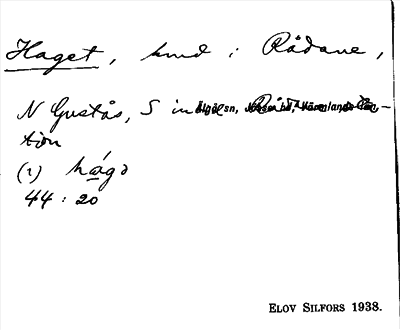 Haget, hmd i Rådane,
N Gustås, S in
tion
(2) hágə
44 : 20
ELOV SILFORS 1938.